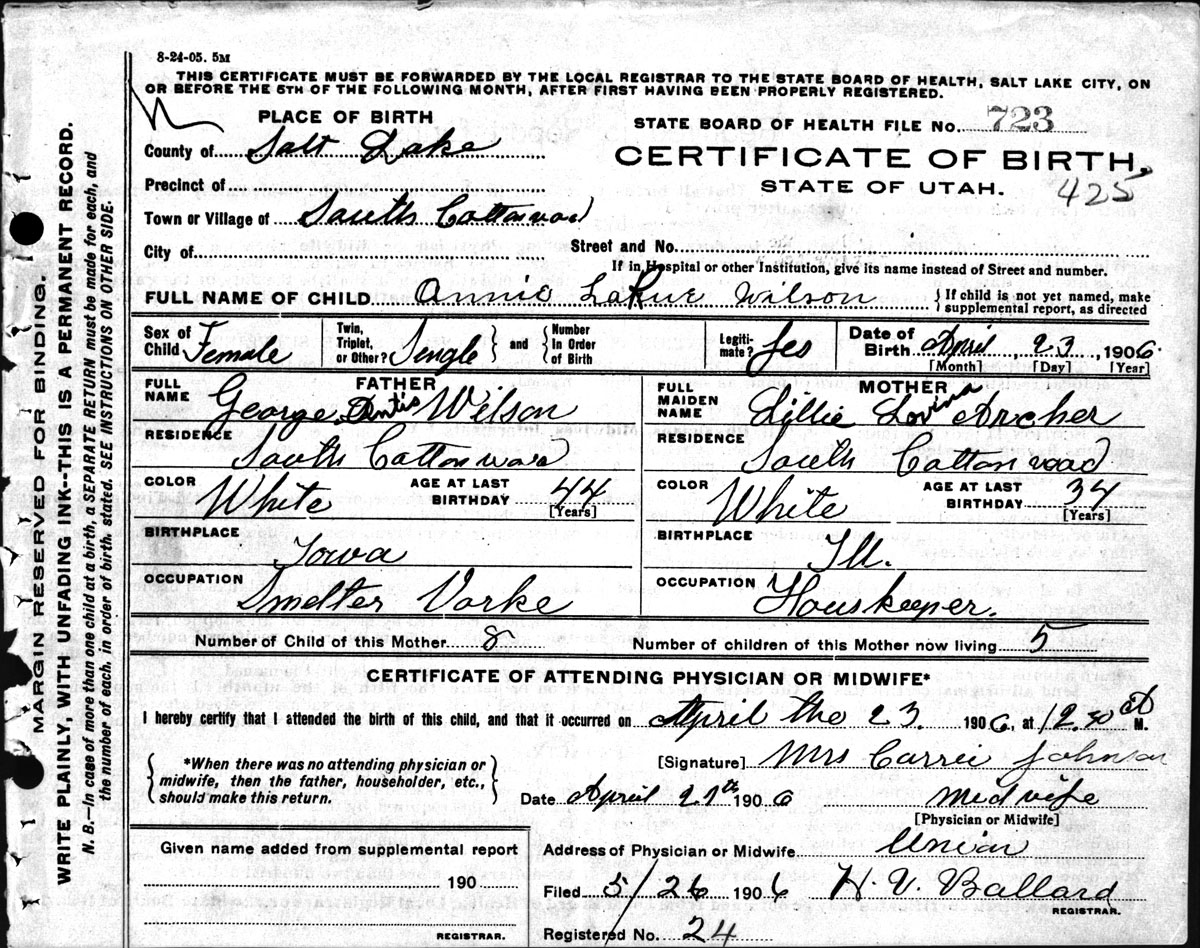 8-24-05. 5M
THIS CERTIFICATE MUST BE FORWARDED BY THE LOCAL REGISTRAR TO THE STATE BOARD OF HEALTH, SALT LAKE CITY, ON
OR BEFORE THE 5TH OF THE FOLLOWING MONTH, AFTER FIRST HAVING BEEN PROPERLY REGISTERED.
PLACE OF BIRTH
STATE BOARD OF HEALTH FILE No. 723
County of Salt Lake
CERTIFICATE OF BIRTH.
Precinct of
STATE OF UTAH.
425
Town or Village of South Cottonwood
City of
Street and No.
If in Hospital or other Institution, give its name instead of Street and number.
FULL NAME OF CHILD Annie LaRue Wilson { If child is not yet named, make supplemental report, as directed
Sex of Child Female Twin, Triplet, or Other? Single } and { Number In Order of Birth Legiti-mate? Yes Date of Birth April, 23, 1906.
[Month] [Day] [Year]
FATHER
FULL NAME George Dentis Wilson
RESIDENCE South Cottonwood
COLOR White AGE AT LAST BIRTHDAY 44 [Years]
BIRTHPLACE Iowa
OCCUPATION Smelter Vorke
MOTHER
FULL MAIDEN NAME Lillie Lovina Archer
RESIDENCE South Cottonwood
COLOR White AGE AT LAST BIRTHDAY 34 [Years]
BIRTHPLACE Ill.
OCCUPATION Houskeeper.
Number of Child of this Mother 8 Number of children of this Mother now living 5
CERTIFICATE OF ATTENDING PHYSICIAN OR MIDWIFE*
I hereby certify that I attended the birth of this child, and that it occurred on April the 23 1906, at 12 M.
*When there was no attending physician or
midwife, then the father, householder, etc.,
should make this return.
[Signature] Mrs Carrei Johnson
Date April 27th 1906 Midvife
[Physician or Midwife]
Given name added from supplemental report
190
REGISTRAR.
Address of Physician or Midwife Union
Filed 5/26 1906 H. V. Ballard
REGISTRAR.
Registered No. 24
MARGIN RESERVED FOR BINDING.
WRITE PLAINLY, WITH UNFADING INK--THIS IS A PERMANENT RECORD.
N. B.—In case of more than one child at a birth, a SEPARATE RETURN must be made for each, and
the number of each, in order of birth, stated. SEE INSTRUCTIONS ON OTHER SIDE.